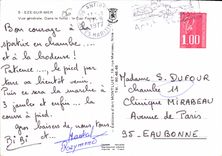 8 - EZE-SUR-MER
Vue générale. Dans le fond : le Cap Ferrat
Bon courage à la
sportive en chambre....
et à la brodeuse !
Patience.... le pied par
terre va bientôt venir.
Puis ce sera la marche à
3 jambes et enfin... la
course.
Gros baisers de nous tous.
Bi Bi et
Raymond
1,00
Madame S. DUFOUR
Chambre 11
Clinique MIRABEAU
Avenue de Paris
95. EAUBONNE